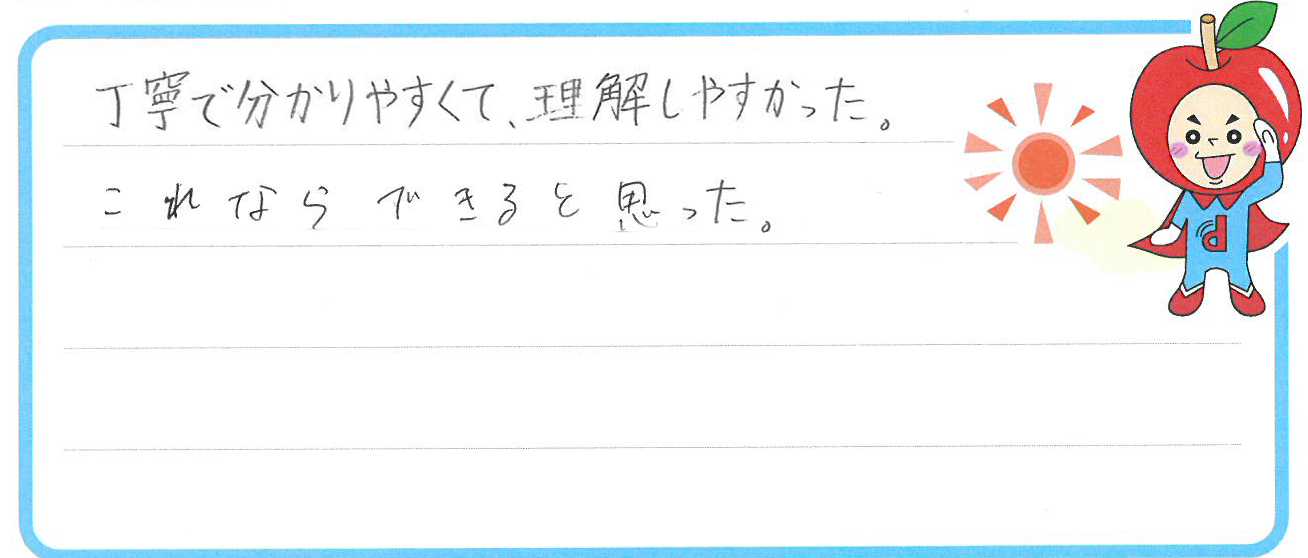 丁寧で分かりやすくて、理解しやすかった。
これならできると思った。